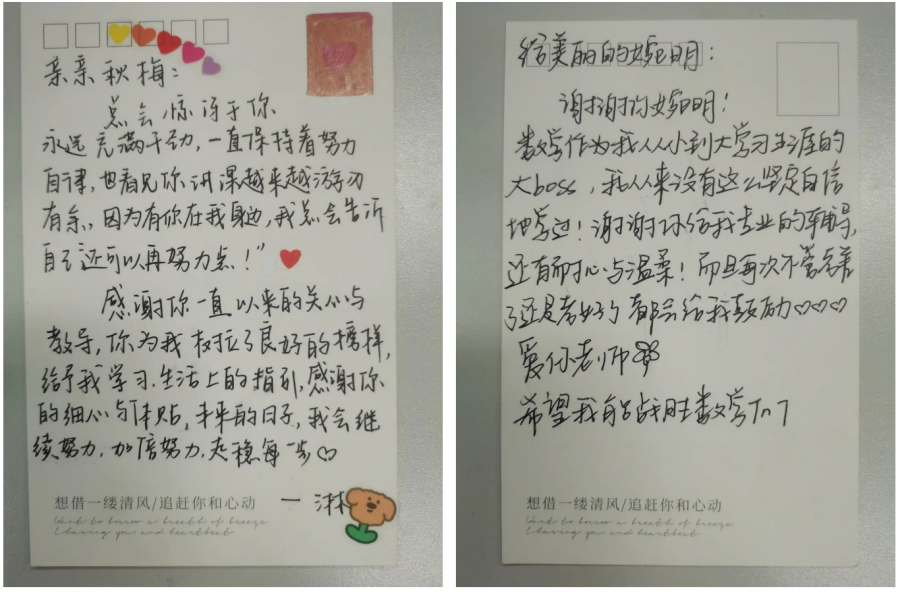 亲亲秋梅：
总会惊讶于你
永远充满干劲，一直保持着努力
自律，也看见你讲课越来越游刃
有余，因为有你在我身边，我总会告诉
自己还可以再努力点！”
感谢你一直以来的关心与
教导，你为我树立了良好的榜样，
给予我学习、生活上的指引，感谢你
的细心与体贴，未来的日子，我会继
续努力，加倍努力，走稳每一步
想借一缕清风/追赶你和心动
Want to borrow a breath of breeze
Chasing you and heartbeat
一 淋
给美丽的婉明：
谢谢你婉明！
数学作为我从小到大学习生涯的
大boss，我从来没有这么坚定自信
地学过！谢谢你给我专业的辅导，
还有耐心与温柔！而且每次不管考差
了还是考好了都会给我鼓励♡♡♡
爱你老师
希望我能战胜数学
想借一缕清风/追赶你和心动
Want to borrow a breath of breeze
Chasing you and heartbeat